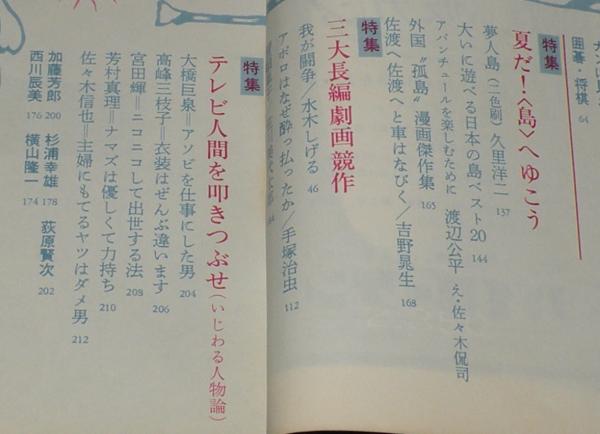 囲碁・将棋 64
特集
夏だ！〈島〉へゆこう
夢人島（二色刷）久里洋二 137
大いに遊べる日本の島ベスト20 144
アバンチュールを楽しむために 渡辺公平 え・佐々木侃司
外国〝孤島〟漫画傑作集 165
佐渡へ佐渡へと車はなびく／吉野晃生 168
特集
三大長編劇画競作
我が闘争／水木しげる 46
アポロはなぜ酔っ払ったか／手塚治虫 112
特集
テレビ人間を叩きつぶせ（いじわる人物論）
大橋巨泉＝アソビを仕事にした男 204
高峰三枝子＝衣装はぜんぶ違います 206
宮田輝＝ニコニコして出世する法 208
芳村真理＝ナマズは優しくて力持ち 210
佐々木信也＝主婦にもてるヤツはダメ男 212
加藤芳郎 200 杉浦幸雄 178 荻原賢次 202
西川辰美 176 横山隆一 174